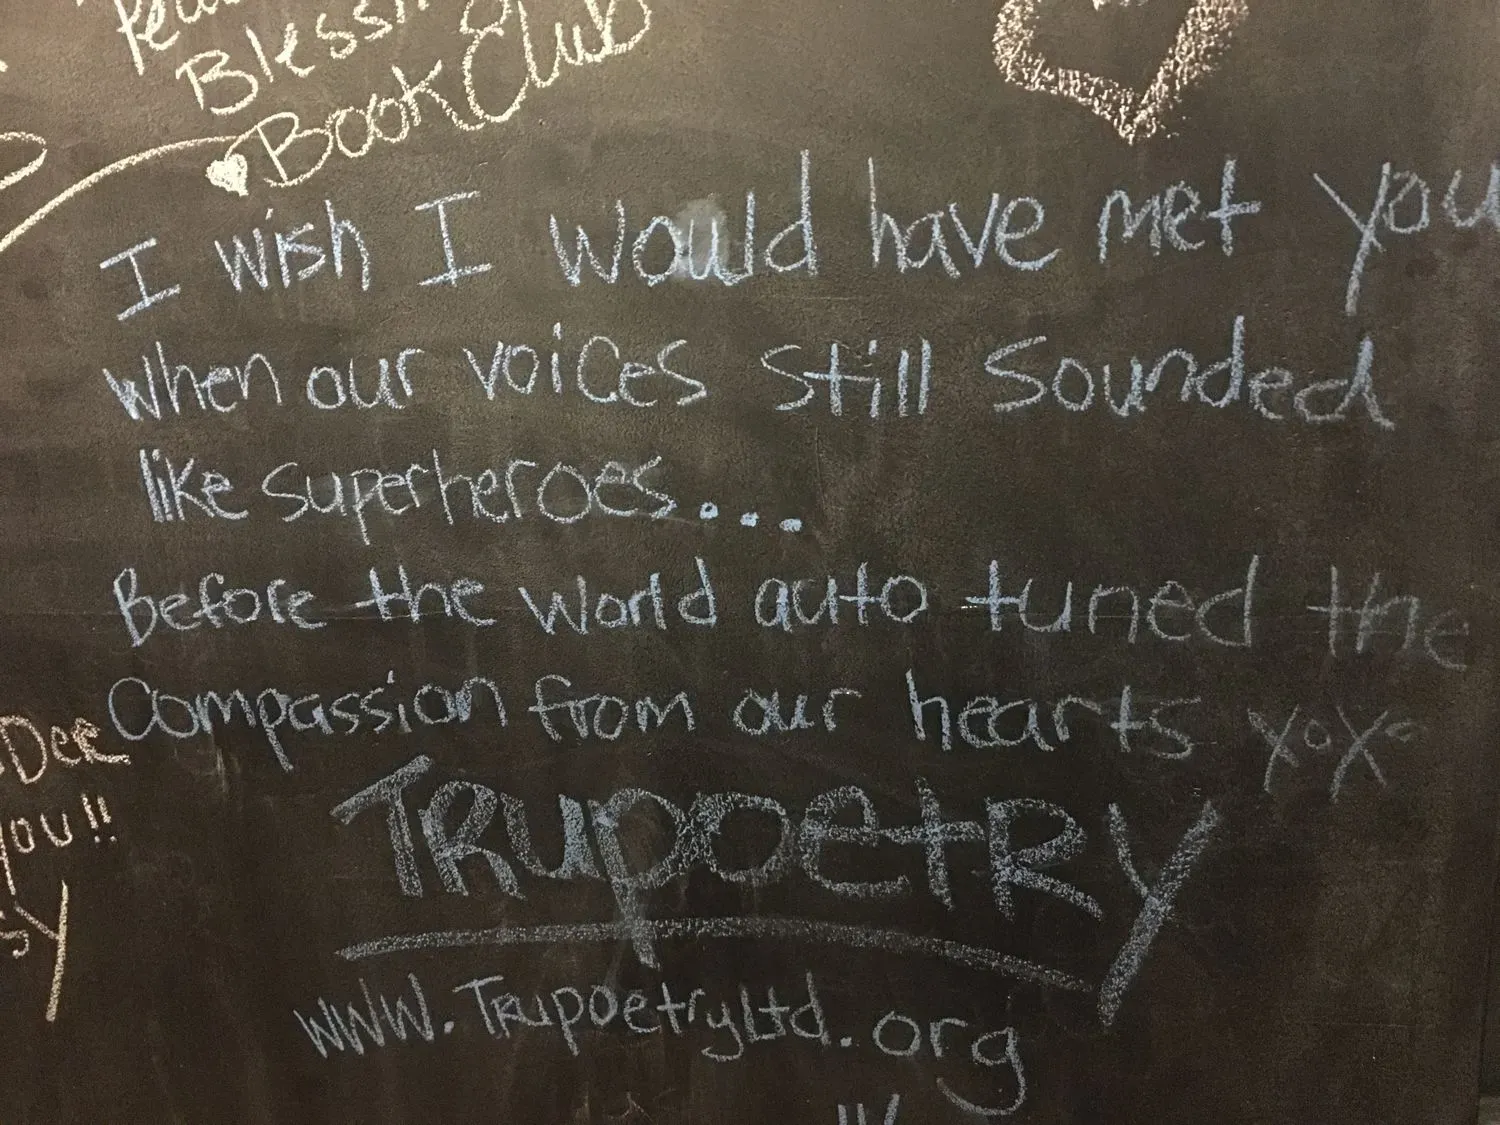 Blessin
Book Club
I wish I would have met you
when our voices still sounded
like superheroes...
Before the world auto tuned the
Compassion from our hearts xoxo
Dee
you!!
sy
TRupoetRy
www.TRupoetryLtd.org